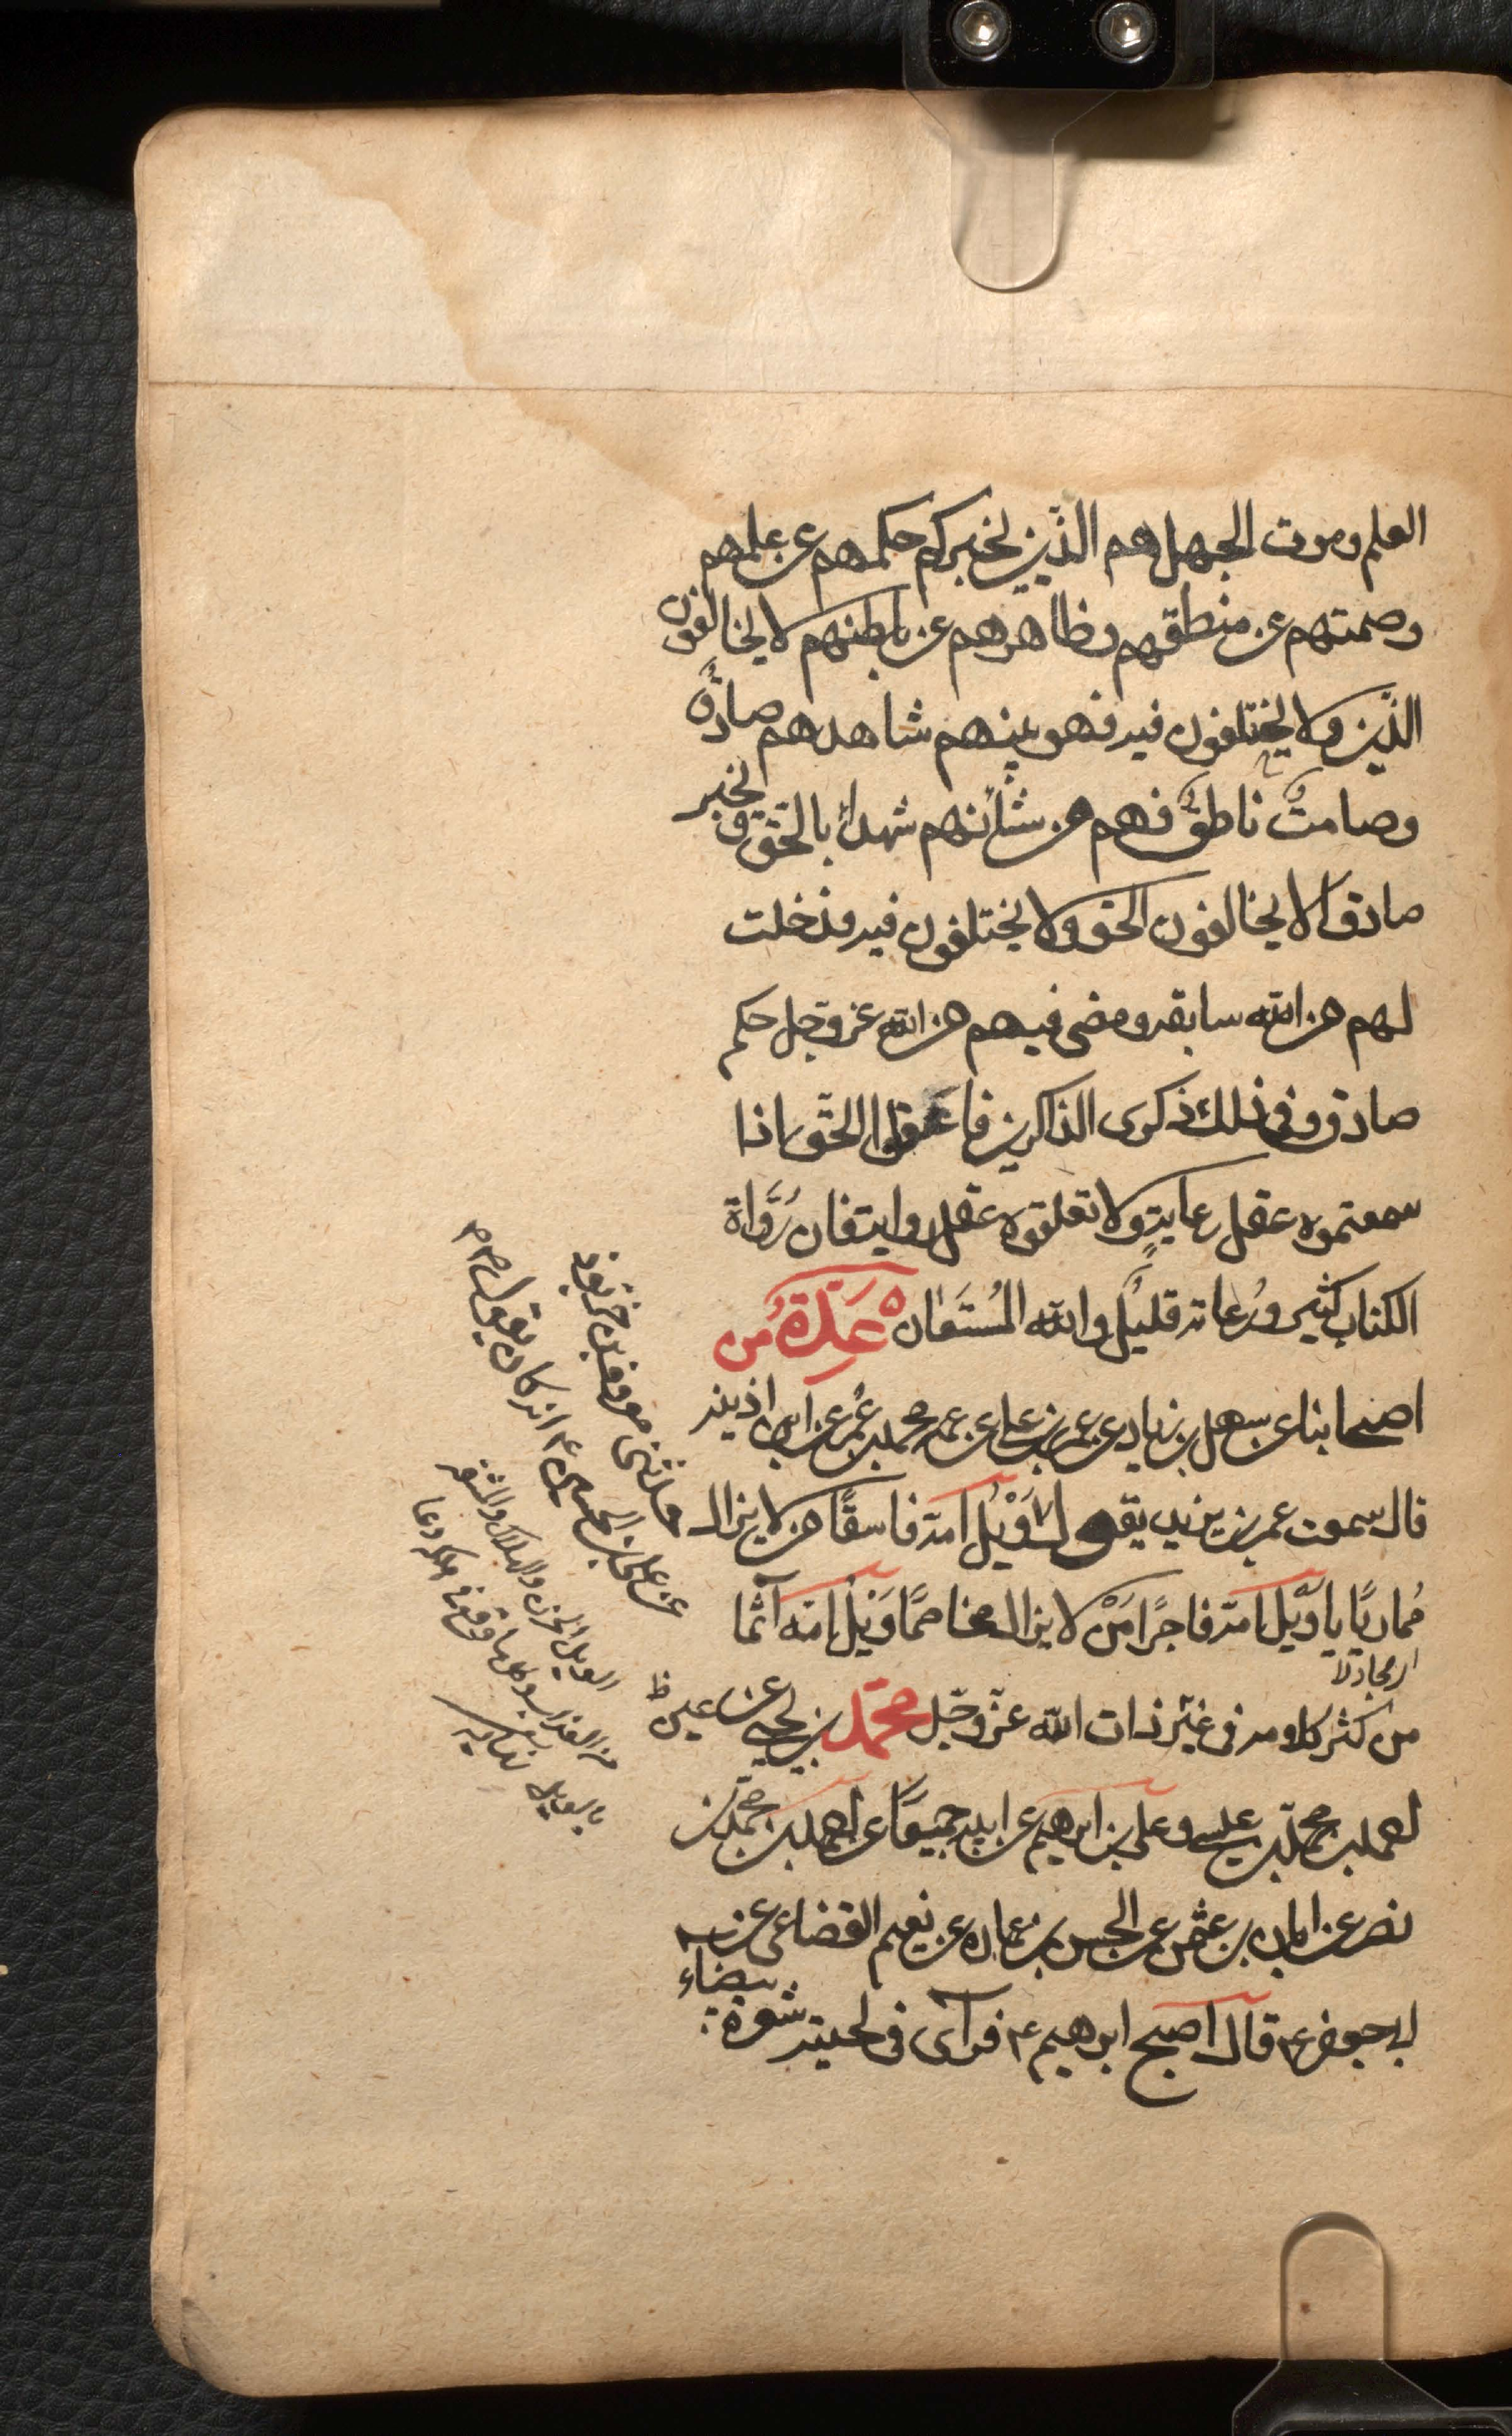 العلم وموت الجهل هم الذين يخبركم حكمهم عن علمهم
وصمتهم عن منطقهم وظاهرهم عن باطنهم لا يخالفون
الدّين ولا يختلفون فيه فهو بينهم شاهدهم صادقٌ
وصامتٌ ناطقٌ فهم من شأنهم شهداء بالحق ومخبر
صادق لا يخالفون الحق ولا يختلفون فيه قد خلت
لهم من الله سابقه ومضى فيهم من الله عز وجل حكم
صادق وفى ذلك ذكرى الذاكرين فاعقلوا الحق اذا
سمعتموه عقل رعايةٍ ولا تعقلوه عقل رواية فان رُوَاة
الكتاب كثير ورُعاته قليلٌ والله المُستَعان ه عِدّةٌ من
اصحابنا عن سهل بن زياد عن عمر بن على عن عمه محمد بن عمر عن ابن اذينه
قال سمعت عمر بن يزيد يقول وَيْلُ امّه فاسقًا من لا يزال
مُماريًا يا وَيْل امّه فاجرًا مَنْ لا يزال مخاصمًا وَيْلُ امّه آثما
اى مجادلا
من كثر كلامه فى غَيْر ذات الله عزّ وجَلّ محمّد بن يحيى عن
احمد بن محمّد بن عيسى وعلى بن ابرهيم عن ابيه جميعًا عن احمد بن محمّد بن
نصر عن ابان بن عثمن عن الحسن بن عماره عن نعيم القضاعى عن
ابى جعفر ع قال اصبح ابرهيم ع فرآى فى لحيته شعرة بيضاء
حدثنى معروف بن خرّبوذ
عن على بن الحسين ع انه كان يقول
الويل الحزن والهلاك والمشقه
من العذاب وكل من وقع فى هلكه دعا
بالويل